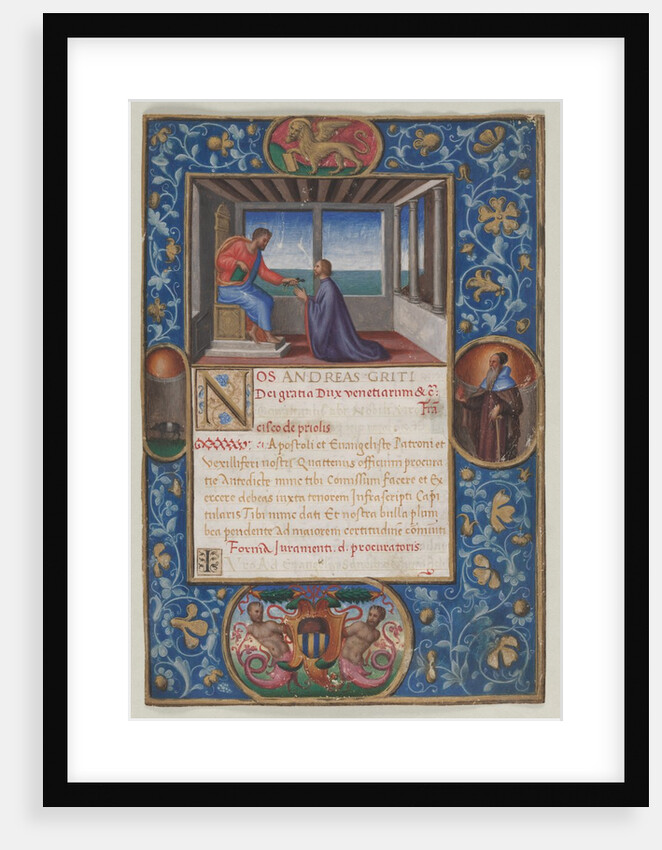 NOS ANDREAS GRITI
Dei gratia Dux venetiarum & c̃:
Frã
cisco de priolis
Apostoli et Euangeliste Patroni et
vexilliferi nostri Quattenus officium procura
tie Antedicte nunc tibi Comissum Facere et Ex
ercere debeas iuxta tenorem Infrascripti Capi
tularis Tibi nunc dati Et nostra bulla plum
bea pendente Ad maiorem certitudinẽ cõmuniti
Forma Iuramenti. d. procuratoris:
I